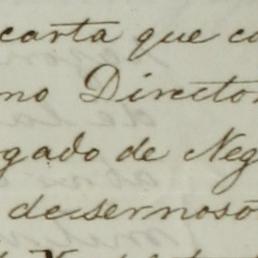 carta que co
mo Director
gado de Neg
desernoso